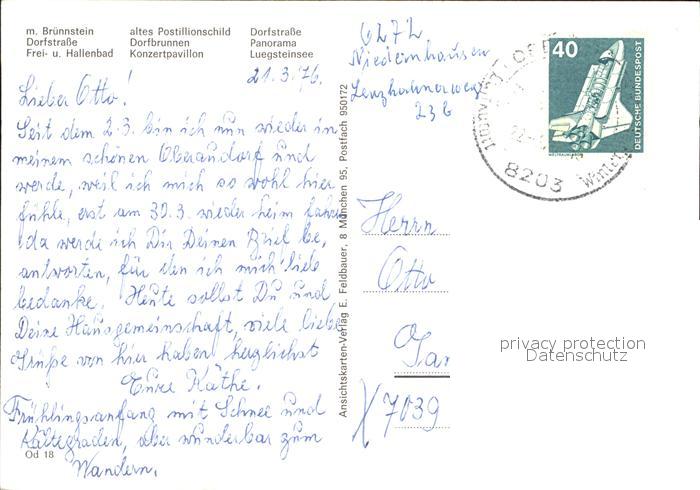 m. Brünnstein
Dorfstraße
Frei- u. Hallenbad
altes Postillionschild
Dorfbrunnen
Konzertpavillon
Dorfstraße
Panorama
Luegsteinsee
21.3.76.
Lieber Otto!
Seit dem 2.3. bin ich nun wieder in
meinem schönen Oberaudorf und
werde, weil ich mich so wohl hier
fühle, erst am 30.3. wieder heim fahren
da werde ich Dir Deinen Brief be,
antworten, für den ich mich liebe
bedanke. Heute sollst Du und
Deine Hausgemeinschaft, viele liebe
Grüße von hier haben herzlichst
Eure Käthe.
Frühlingsanfang mit Schnee und
Kältegraden, aber wunderbar zum
Wandern.
Od 18
Ansichtskarten-Verlag E. Feldbauer, 8 München 95, Postfach 950172
6272
Niedernhausen
Lenzhahnerweg
23 b
40
DEUTSCHE BUNDESPOST
WELTRAUMLABOR
8203
Herrn
Otto
7039
privacy protection
Datenschutz